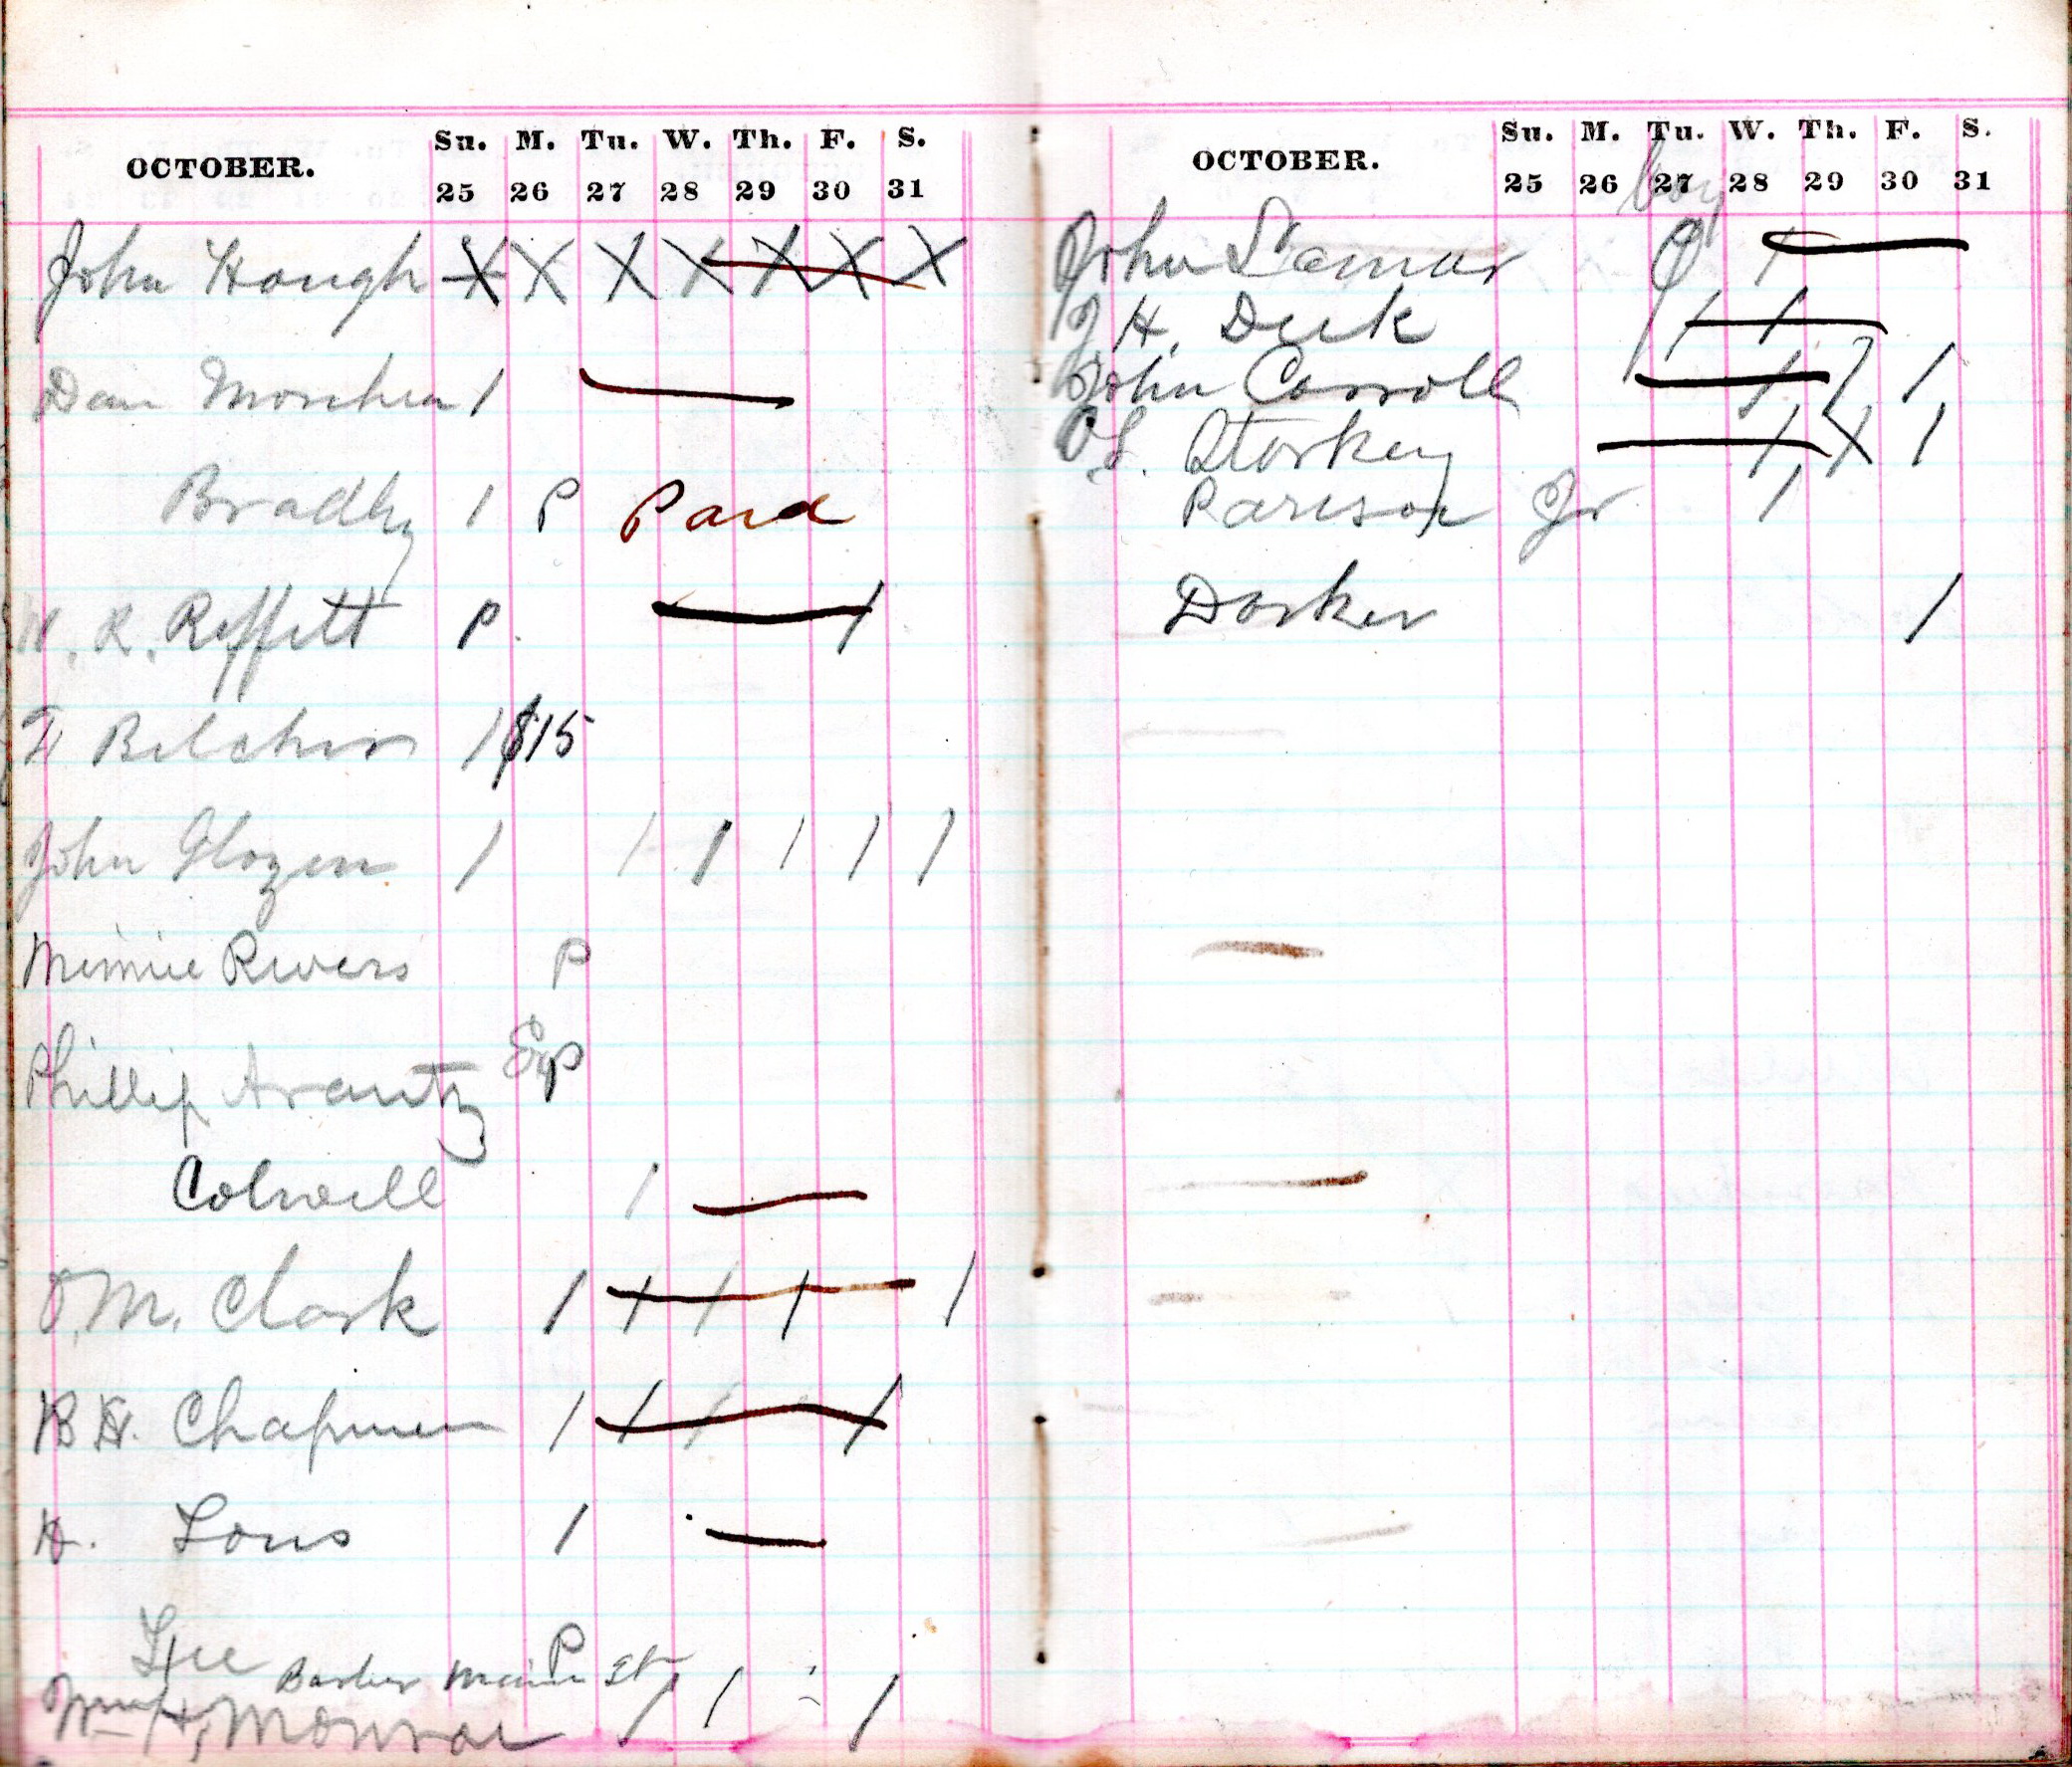 OCTOBER. Su. M. Tu. W. Th. F. S.
25 26 27 28 29 30 31
John Hough X X X X X X X
Dan 1
Bradly 1 P Paid
W. R. Reffett P.
Belcher 1 $15
John Glozen 1 1 1 1 1 1
Minnie Rivers P
Phillip Arantz Exp
Colwell 1
O, M. Clark 1 1 1 1 1
B H. Chapman 1 1 1 1
H. Lous 1
Lee P
Barber Main St
Wm H, Monroe 1 1 1
OCTOBER. Su. M. Tu. W. Th. F. S.
25 26 27 28 29 30 31
boy
John Lamar 1
J H. Deck 1 1
John Carroll 1 1
Storkey 1 X 1
Parison Jr 1
Dorker 1